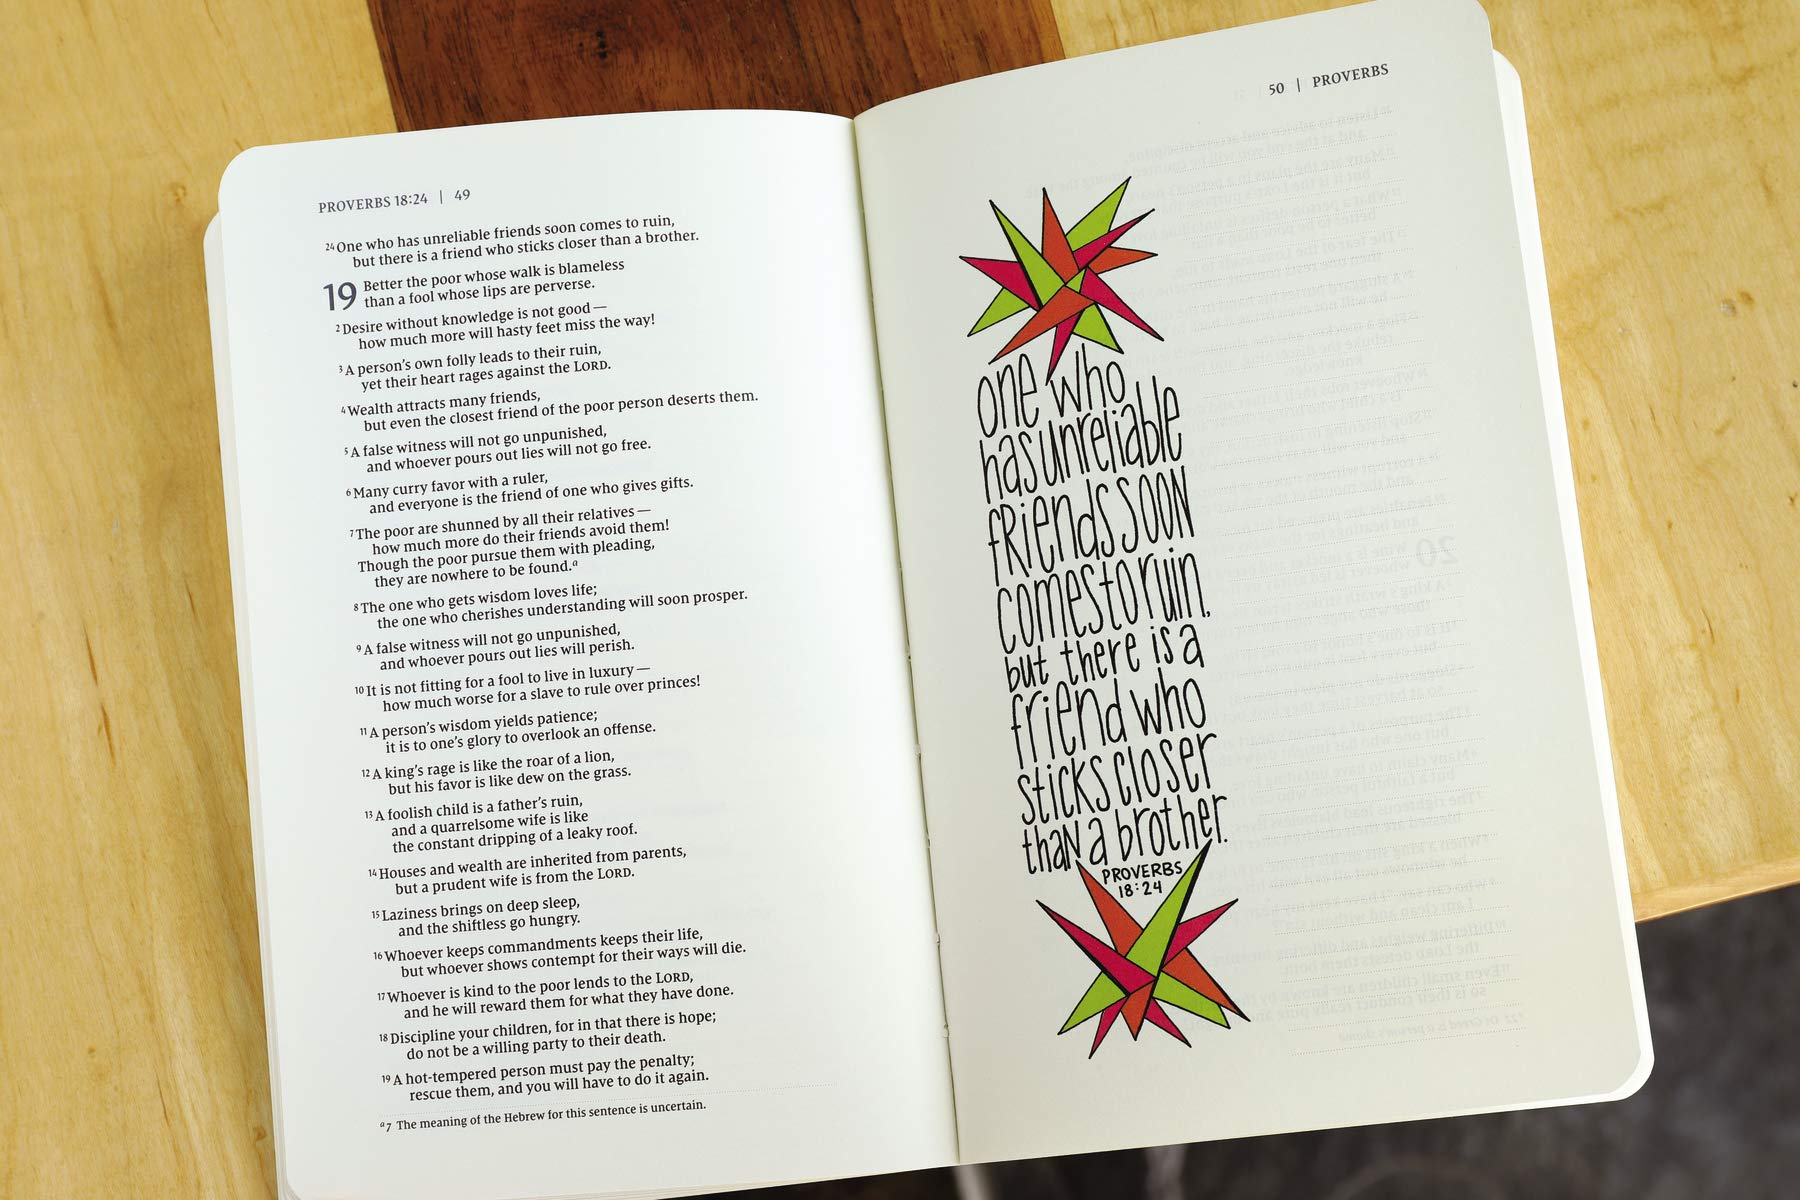 PROVERBS 18:24 | 49
24 One who has unreliable friends soon comes to ruin,
but there is a friend who sticks closer than a brother.
19 Better the poor whose walk is blameless
than a fool whose lips are perverse.
2 Desire without knowledge is not good—
how much more will hasty feet miss the way!
3 A person's own folly leads to their ruin,
yet their heart rages against the LORD.
4 Wealth attracts many friends,
but even the closest friend of the poor person deserts them.
5 A false witness will not go unpunished,
and whoever pours out lies will not go free.
6 Many curry favor with a ruler,
and everyone is the friend of one who gives gifts.
7 The poor are shunned by all their relatives—
how much more do their friends avoid them!
Though the poor pursue them with pleading,
they are nowhere to be found.a
8 The one who gets wisdom loves life;
the one who cherishes understanding will soon prosper.
9 A false witness will not go unpunished,
and whoever pours out lies will perish.
10 It is not fitting for a fool to live in luxury—
how much worse for a slave to rule over princes!
11 A person's wisdom yields patience;
it is to one's glory to overlook an offense.
12 A king's rage is like the roar of a lion,
but his favor is like dew on the grass.
13 A foolish child is a father's ruin,
and a quarrelsome wife is like
the constant dripping of a leaky roof.
14 Houses and wealth are inherited from parents,
but a prudent wife is from the LORD.
15 Laziness brings on deep sleep,
and the shiftless go hungry.
16 Whoever keeps commandments keeps their life,
but whoever shows contempt for their ways will die.
17 Whoever is kind to the poor lends to the LORD,
and he will reward them for what they have done.
18 Discipline your children, for in that there is hope;
do not be a willing party to their death.
19 A hot-tempered person must pay the penalty;
rescue them, and you will have to do it again.
a 7 The meaning of the Hebrew for this sentence is uncertain.
50 | PROVERBS
one who
has unreliable
friends soon
comes to ruin,
but there is a
friend who
sticks closer
than a brother.
PROVERBS
18:24